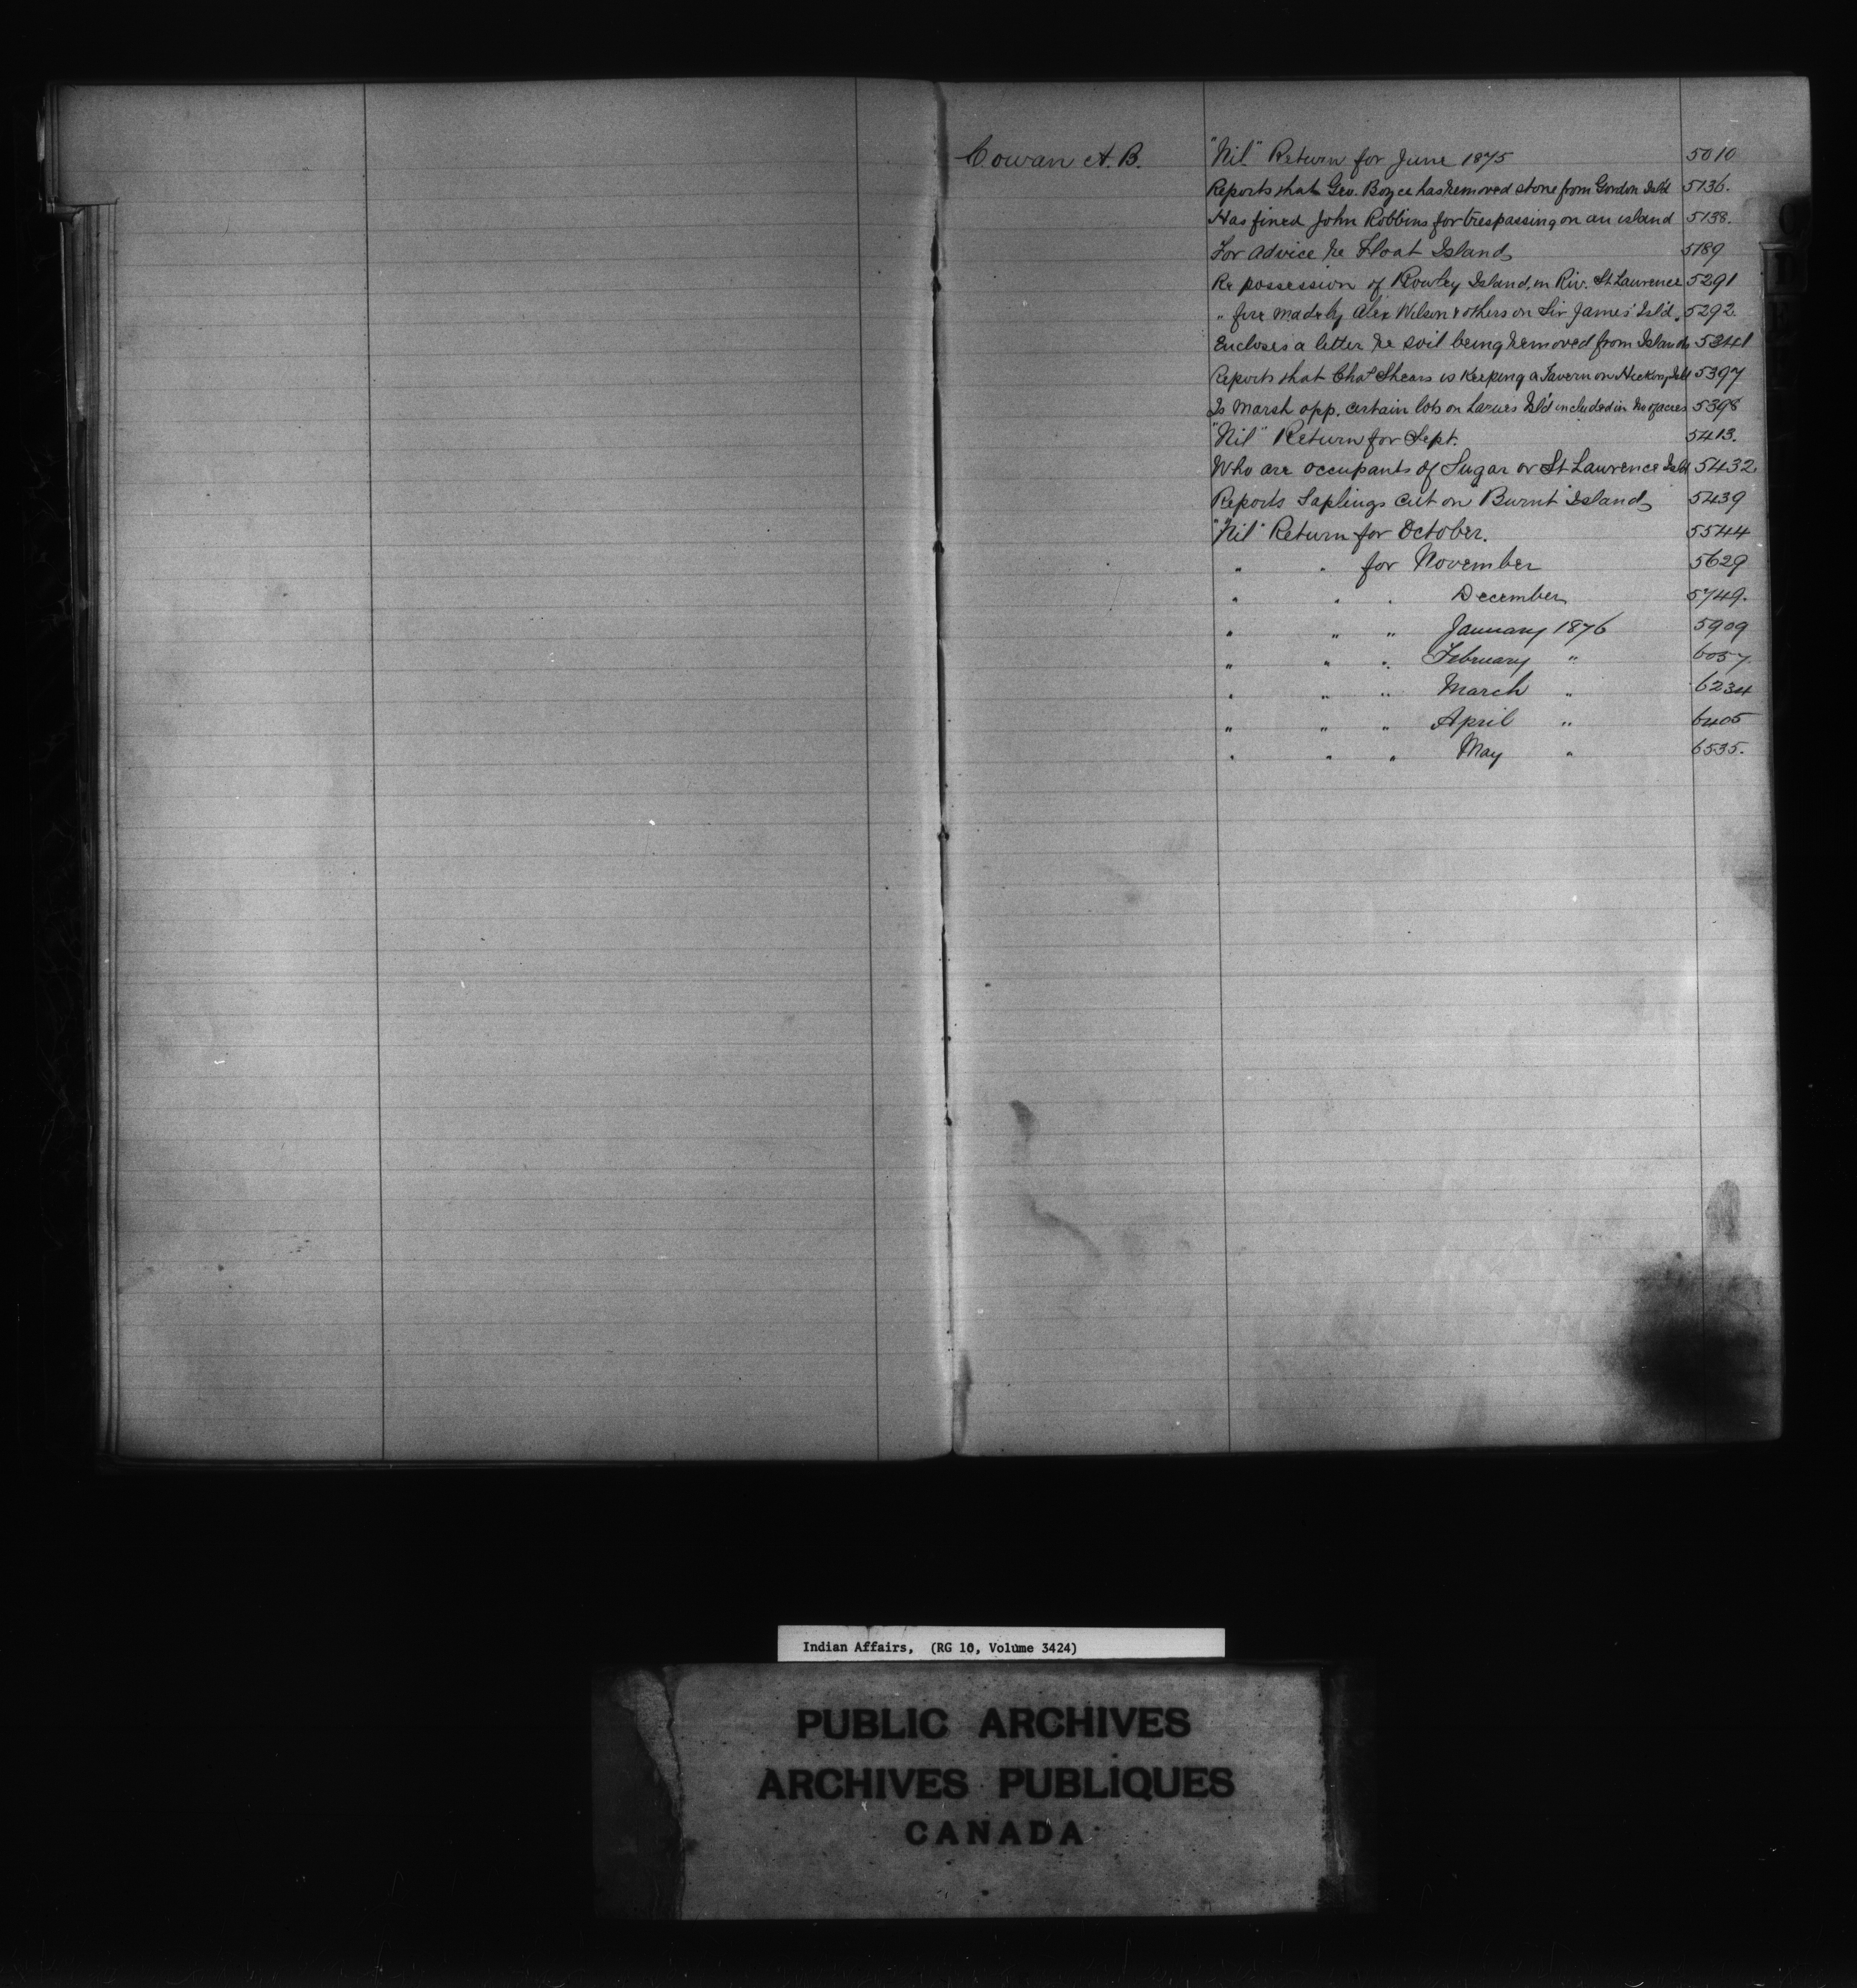 Cowan A. B. "Nil" Return for June 1875 5010
Reports that Geo. Boyce has removed stone from Gordon Isl'd 5136.
Has fined John Robbins for trespassing on an island 5138.
For advice re Float Island 5189
Re possession of Rowley Island, in Riv. St. Lawrence 5291
" fire made by Alex Wilson & others on Sir James' Isl'd. 5292.
Encloses a letter re soil being removed from Islands 5341
Reports that Chas Shears is keeping a Tavern on Hickory Isl'd 5397
Is Marsh opp. certain lots on Isl'd included in No of acres 5398
"Nil" Return for Sept. 5413.
Who are occupants of Sugar or St Lawrence Isl'd 5432.
Reports Saplings cut on "Burnt" Island 5439
"Nil" Return for October. 5544
" " for November 5629
" " " December 5749.
" " " January 1876 5909
" " " February " 6057.
" " " March " 6234
" " " April " 6405
" " " May " 6535.
C
D
Indian Affairs, (RG 10, Volume 3424)
PUBLIC ARCHIVES
ARCHIVES PUBLIQUES
CANADA